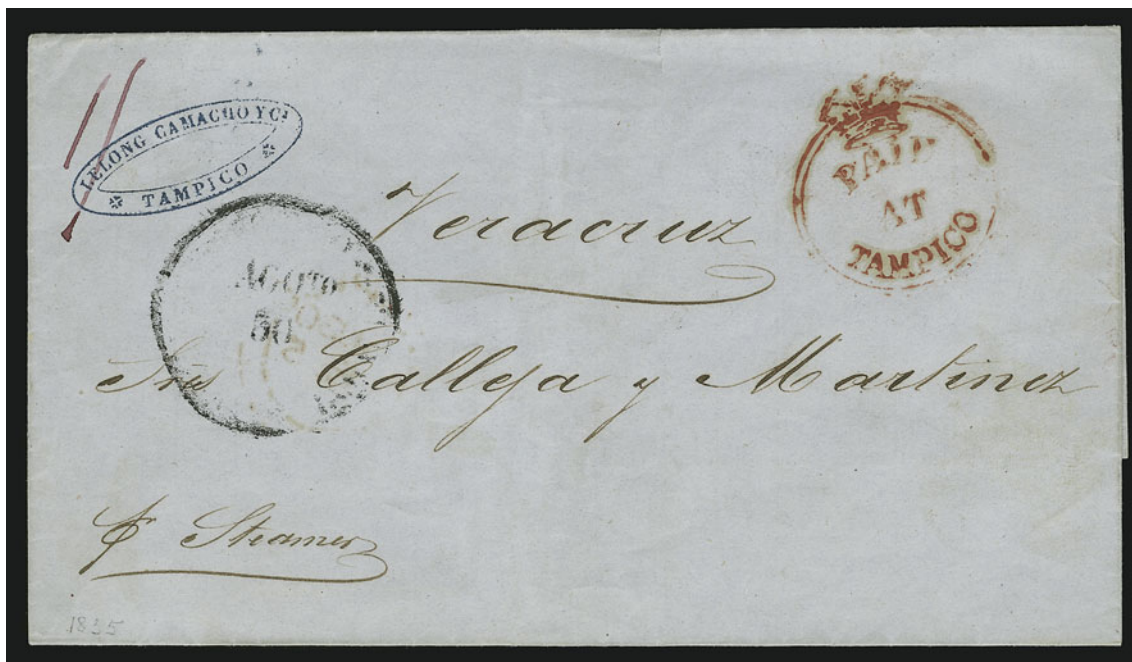 LELONG CAMACHO Y Cª
TAMPICO
PAID
AT
TAMPICO
Veracruz
AGOTO
30
Sres Calleja y Martinez
pr Steamer
1855